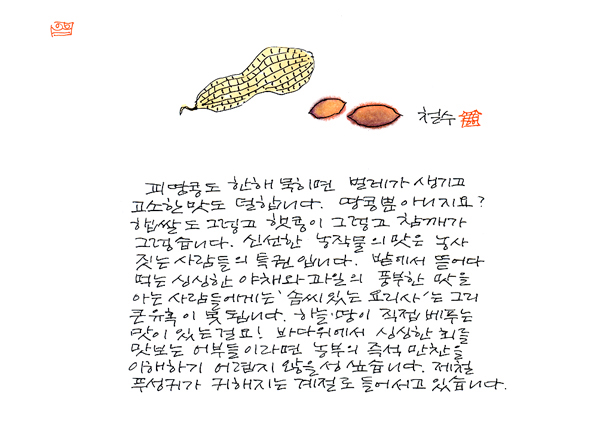 철수
피땅콩도 한해 묵히면 벌레가 생기고
고소한 맛도 덜합니다. 땅콩뿐 아니지요?
햅쌀도 그렇고 햇콩이 그렇고 참깨가
그렇습니다. 신선한 농작물의 맛은 농사
짓는 사람들의 특권입니다. 밭에서 뜯어다
먹는 싱싱한 야채와 과일의 풍부한 맛을
아는 사람들에게는 '솜씨있는 요리사'는 그리
큰 유혹이 못 됩니다. 하늘·땅이 직접 베푸는
맛이 있는걸요! 바다위에서 싱싱한 회를
맛보는 어부들이라면 농부의 즉석 만찬을
이해하기 어렵지 않을성 싶습니다. 제철
푸성귀가 귀해지는 계절로 들어서고 있습니다.